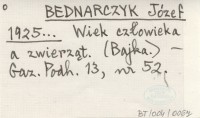 BEDNARCZYK Józef
1925... Wiek człowieka
a zwierząt. (Bajka.) –
Gaz. Podh. 13, nr 52.
BJ/004/0069